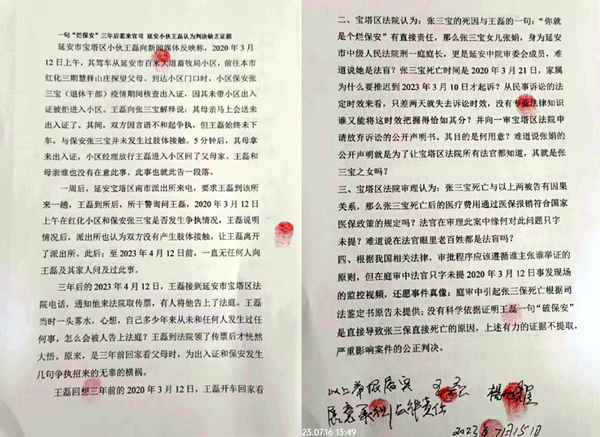 一句“烂保安” 三年后惹来官司 延安小伙王磊认为判决缺乏证据
延安市宝塔区小伙王磊向新闻媒体反映称，2020 年 3 月
12 日上午，其驾车从延安市百米大道畜牧局小区，前往本市
红化三期慧择山庄探望父母。到达小区门口时，小区保安张
三宝（退休干部）疫情期间核查出入证，因其未带小区出入
证被拒进入小区。王磊向张三宝解释说：其母亲马上会送来
出入证了。其间，双方因言语不和起争执，但王磊始终未下
车，与保安张三宝并未发生过肢体接触。5 分钟后，其母拿
来出入证，小区经理放行王磊进入小区回了父母家，王磊和
母亲谁也没有在意此事。此事也就此告一段落。
一周后，延安宝塔区南市派出所来电，要求王磊到该所
来一趟，王磊到所后，所干警询问王磊，2020 年 3 月 12 日
上午在红化小区和保安张三宝是否发生争执情况，王磊说明
情况后，派出所也认为双方没有产生肢体接触，让王磊离开
了派出所，此后；至 2023 年 4 月 12 日前，一直无任何人向
王磊及其家人问及过此事。
三年后的 2023 年 4 月 12 日，王磊接到延安市宝塔区法
院电话，通知他来法院取传票，有人将他告上了法庭。王磊
当时一头雾水，心想，自己多少年来从未和任何人发生过任
何事，怎么会被人告上法庭？王磊到法院领了传票后才恍然
大悟。原来，是三年前回家看父母时，为出入证和保安发生
几句争执招来的无辜的横祸。
王磊回想三年前的 2020 年 3 月 12 日，王磊开车回家看
二、宝塔区法院认为：张三宝的死因与王磊的一句：“你就
是个烂保安”有直接责任，那么张三宝女儿张娟，身为延安
市中级人民法院刑一庭庭长，更是延安中院审委会成员，难
道说她是法盲？张三宝死亡时间是 2020 年 3 月 21 日，家属
为什么要推迟到 2023 年 3 月 10 日才起诉？从民事诉讼的法
定时效来看，只差两天就失去诉讼时效，没有专业法律知识
谁又能将这时效把握得恰如其分？并向一审宝塔区法院申
请放弃诉讼的公开声明书。其目的是何用意？难道说张娟的
公开声明就是为了让宝塔区法院法官都知道，其就是张三宝
之女吗？
三、宝塔区法院审理认为：张三宝死亡与以上两被告有因果
关系，那么张三宝死后的医疗费用通过医保报销符合国家
医保政策的规定吗？法官在审理此案中缘何对此问题只字
未提？难道说在法官眼里老百姓都是法盲吗？
四、根据我国相关法律，审批程序应该遵循谁主张谁举证的
原则，但在庭审中法官只字未提 2020 年 3 月 12 日事发现场
的监控视频，还愿事件真像；庭审中引起张三保死亡根据司
法鉴定书原告未提供；没有科学依据证明王磊一句“破保安”
是直接导致张三保直接死亡的原因，上述有力的证据不提取，
严重影响案件的公正判决。
以上举报属实 王磊
愿意承担法律责任
2023年7月15日
23.07.16 13:49